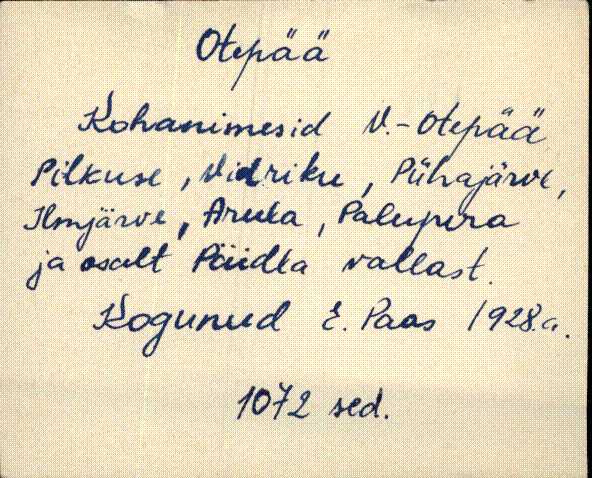 Otepää
Kohanimesid V.-Otepää
Pilkuse, Vidriku, Pühajärve,
Ilmjärve, Arula, Palupera
ja osalt Päidla vallast.
Kogunud E. Paas 1928.a.
1072 sed.